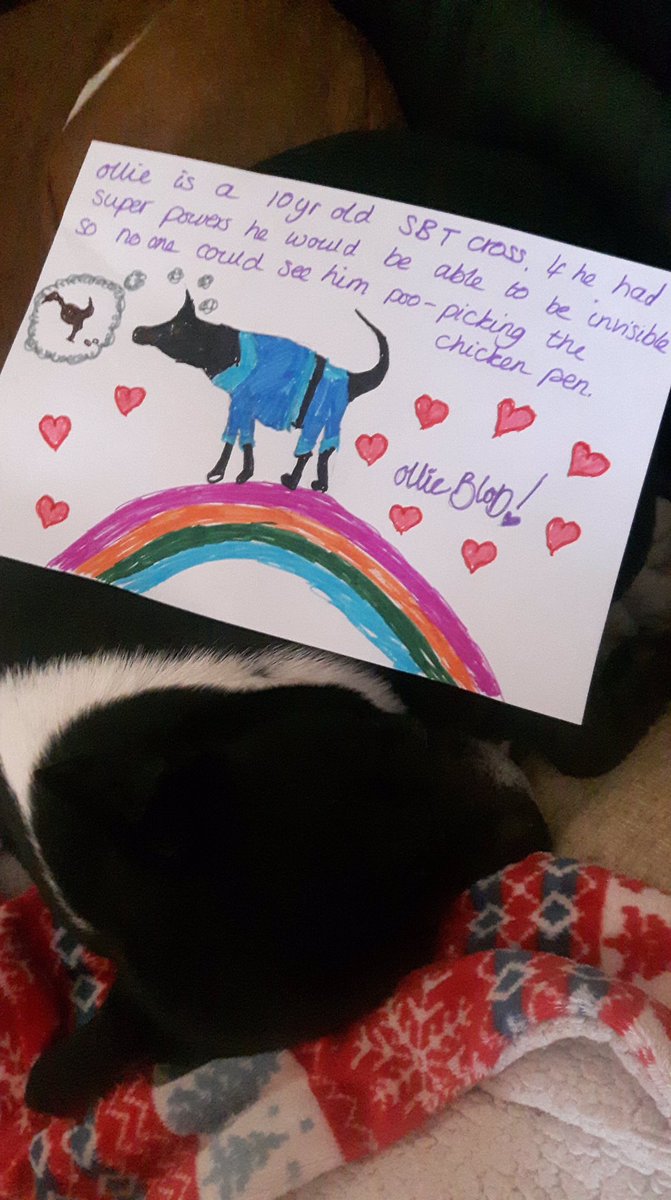 Ollie is a 10yr old SBT cross. If he had
super powers he would be able to be invisible
so no one could see him poo-picking the
chicken pen.
Ollie Blob!